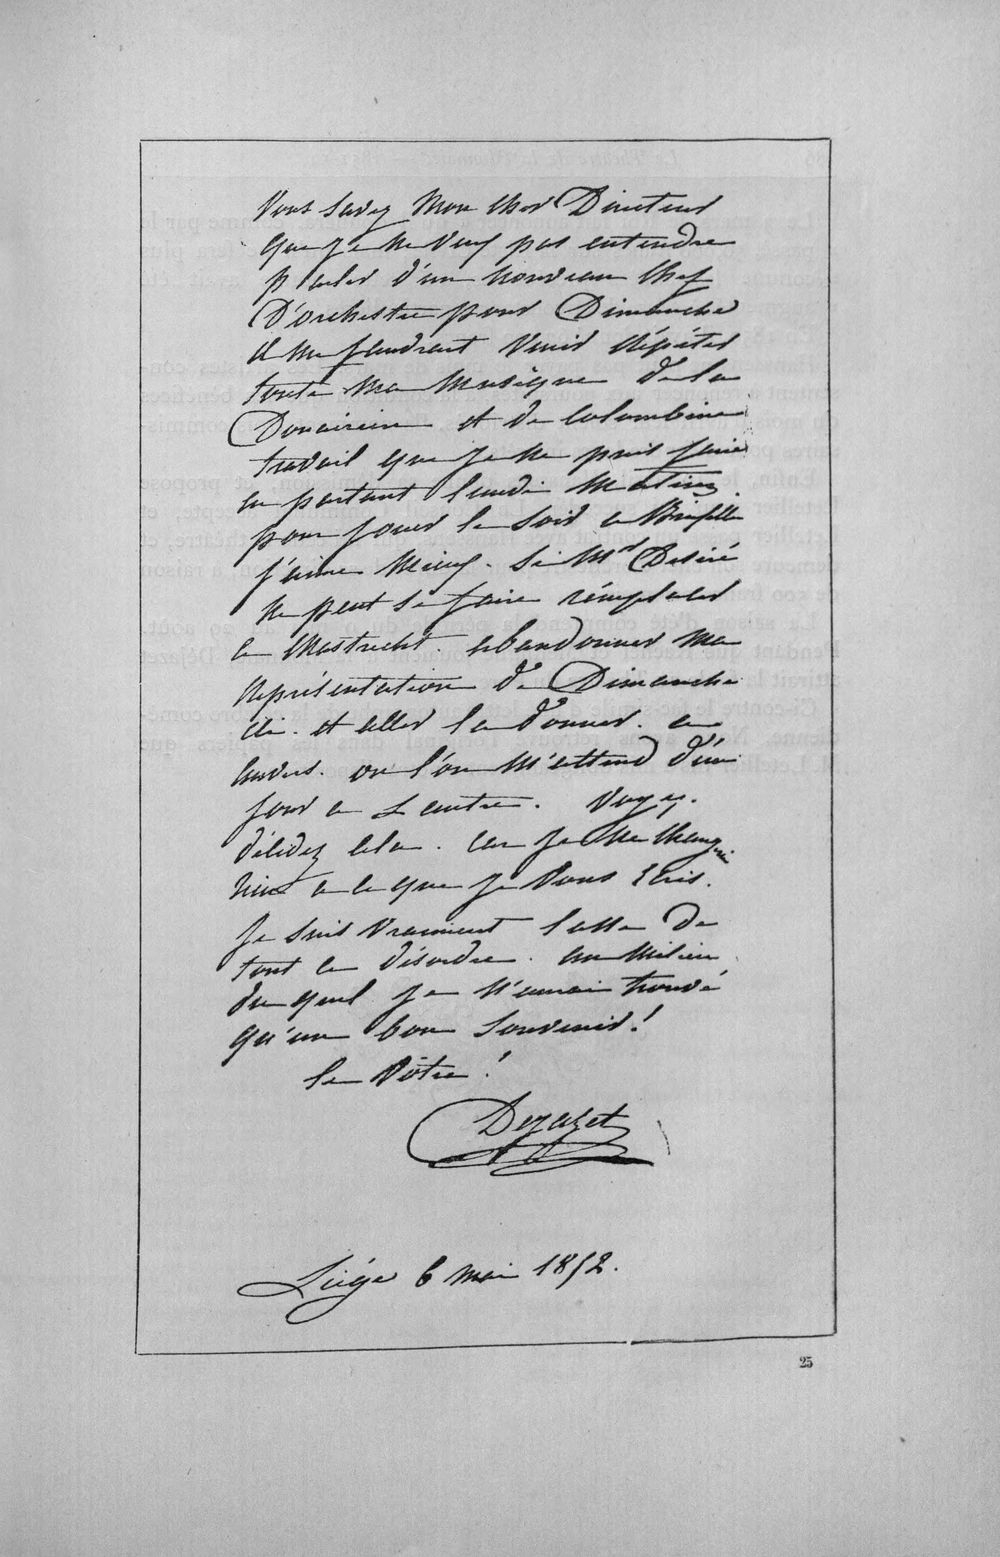 Vous Savez Mon Cher Directeur
que je ne veux pas entendre
parler d'un nouveau Chef
D'orchestre pour Dimanche
il me faudrait venir Répéter
toute ma Musique de la
Douairière et de Colombine
travail que je ne puis faire
en partant lundi Matin
pour jouer le Soir a Bruxelles
j'aime Mieux. Si Mr Désiré
ne peut se faire remplacer
a Mastrecht. abandonner ma
Représentation de Dimanche
ici. et aller la donner. a
Anvers. ou l'on M'attend d'un
jour a L'autre. Voyez.
décidez cela. car je ne change
rien a ce que je Vous Ecris.
Je suis Vraiment lasse de
tout ce désordre. au Milieu
du quel je n'aurai trouvé
qu'un bon Souvenir!
le Vôtre!
Dejazet
Liége 6 mai 1852.
25